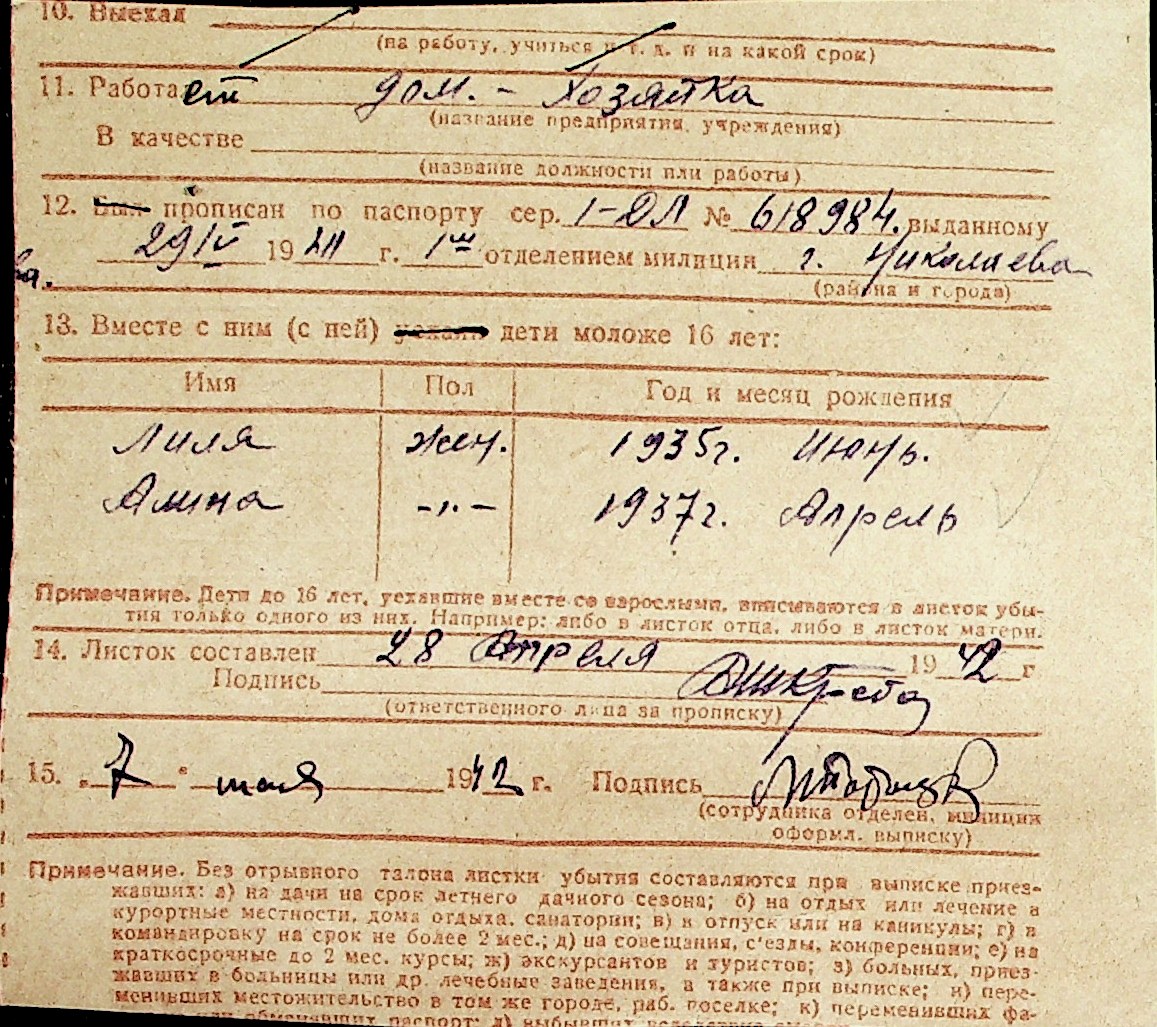 10. Выехал
(на работу, учиться и т. д. и на какой срок)
11. Работает дом. - Хозяйка
(название предприятия, учреждения)
В качестве
(название должности или работы)
12. Был прописан по паспорту сер. 1-ДЛ № 618984. выданному
29/IV 19 г. 1ш отделением милиции г. Николаева
ва.
(района и города)
13. Вместе с ним (с ней) уехали дети моложе 16 лет:
Имя Пол Год и месяц рождения
Лиля жен. 1935г. Июнь.
Алина -"- 1937г. Апрель
Примечание. Дети до 16 лет, уехавшие вместе со взрослыми, вписываются в листок убы-
тия только одного из них. Например: либо в листок отца, либо в листок матери.
14. Листок составлен 28 Апреля 1942 г
Подпись
(ответственного лица за прописку)
15. "7" мая 1942 г. Подпись
(сотрудника отделен. милиции
оформл. выписку)
Примечание. Без отрывного талона листки убытия составляются при выписке приез-
жавших: а) на дачи на срок летнего дачного сезона; б) на отдых или лечение в
курортные местности, дома отдыха, санатории; в) в отпуск или на каникулы; г) в
командировку на срок не более 2 мес.; д) на совещания, с'езды, конференции; е) на
краткосрочные до 2 мес. курсы; ж) экскурсантов и туристов; з) больных, приез-
жавших в больницы или др. лечебные заведения, а также при выписке; и) пере-
менивших местожительство в том же городе, раб. поселке; к) переменивших фа-
или обменявших паспорт; л) выбывших вследствие